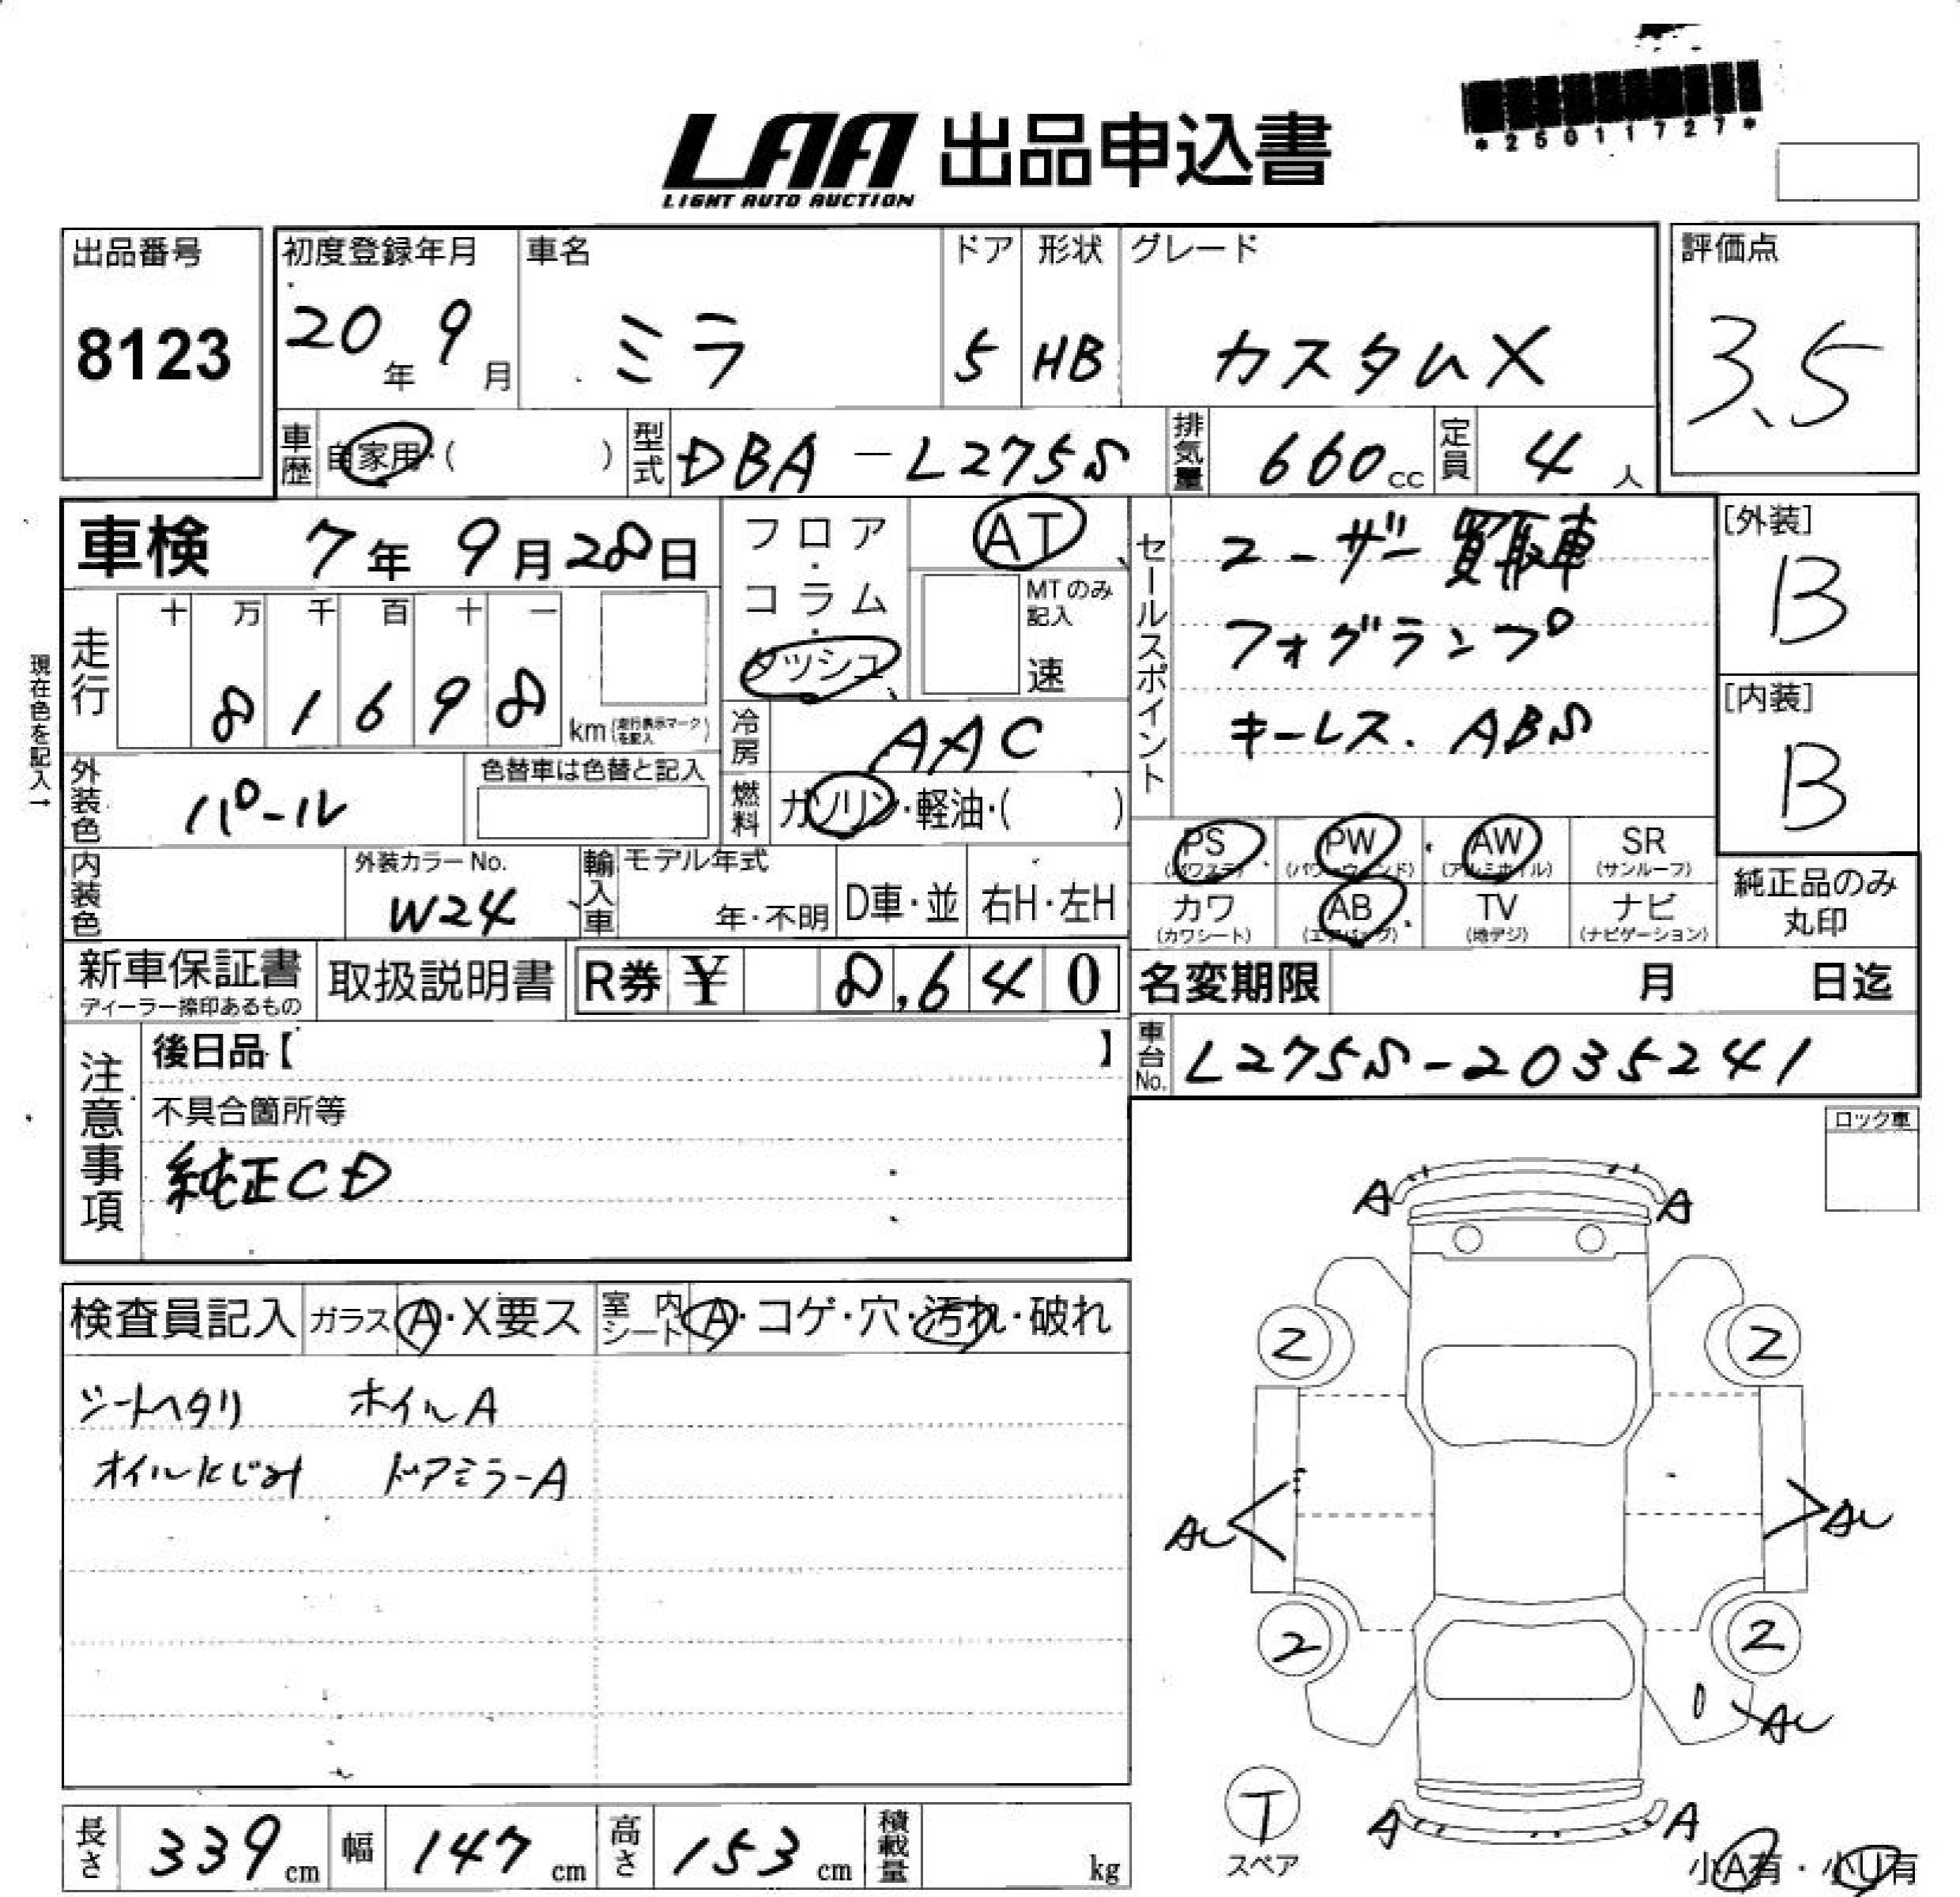 *25011727*
LAA 出品申込書
LIGHT AUTO AUCTION
出品番号 初度登録年月 車名 ドア 形状 グレード 評価点
8123 20年 9月 ミラ 5 HB カスタムX 3.5
車歴 自家用・( ) 型式 DBA-L275S 排気量 660cc 定員 4人
車検 7年 9月 28日
フロア・コラム・ダッシュ
AT
MTのみ記入
速
現在色を記入→
走行 十 万 千 百 十 一
8 1 6 9 8
km(走行表示マークを記入)
冷房 AAC
燃料 ガソリン・軽油・( )
セールスポイント
ユーザー買取車
フォグランプ
キーレス. ABS
[外装]
B
[内装]
B
外装色 パール
色替車は色替と記入
内装色
外装カラーNo.
W24
輸入車 モデル年式
年・不明 D車・並 右H・左H
PS PW AW SR
(パワステ) (パワーウィンド) (アルミホイル) (サンルーフ)
カワ AB TV ナビ
(カワシート) (エアバッグ) (地デジ) (ナビゲーション)
純正品のみ
丸印
新車保証書
ディーラー捺印あるもの
取扱説明書 R券 ¥ 8,640
名変期限 月 日迄
車台No. L275S-2035241
注意事項
後日品【 】
不具合箇所等
純正CD
ロック車
検査員記入 ガラス A・X要ス 室内シート A・コゲ・穴・汚れ・破れ
シートヘタリ ホイルA
オイルにじみ ドアミラーA
A A
2 2
AU AU
2 2
AU
T
スペア
A A
小A有・小U有
長さ 339cm 幅 147cm 高さ 153cm 積載量 kg